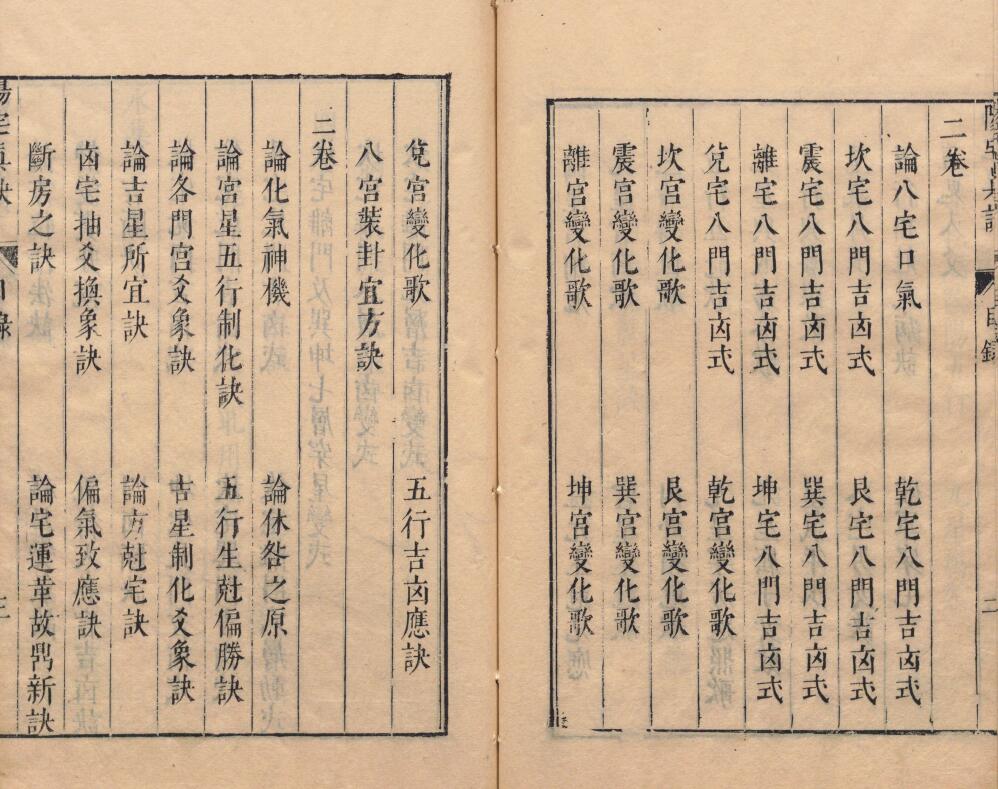 二卷
論八宅口氣　乾宅八門吉㐫式
坎宅八門吉㐫式　艮宅八門吉㐫式
震宅八門吉㐫式　巽宅八門吉㐫式
離宅八門吉㐫式　坤宅八門吉㐫式
兊宅八門吉㐫式　乾宮變化歌
坎宮變化歌　艮宮變化歌
震宮變化歌　巽宮變化歌
離宮變化歌　坤宮變化歌
兊宮變化歌　五行吉㐫應訣
八宮裝卦宜方訣
三卷
論化氣神機　論休咎之原
論宮星五行制化訣　五行生尅偏勝訣
論各門宮爻象訣　吉星制化爻象訣
論吉星所宜訣　論方尅宅訣
㐫宅抽爻換象訣　偏氣致應訣
斷房之訣　論宅運革故鼎新訣